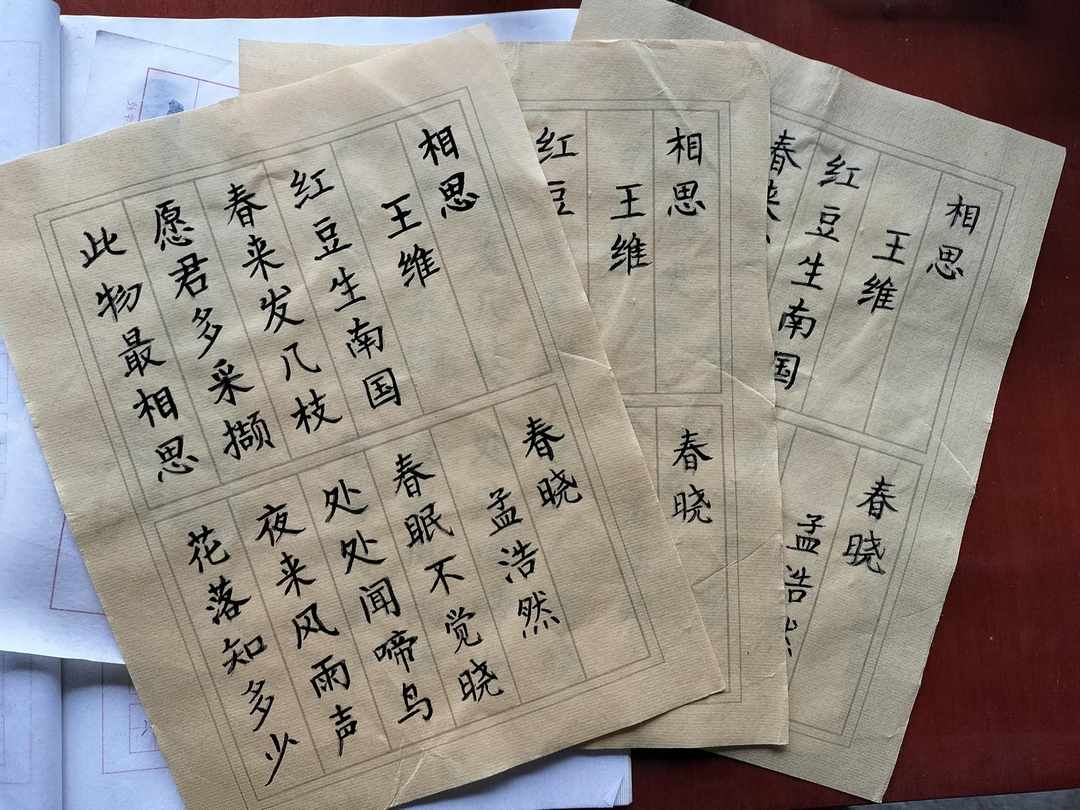 相思
王维
红豆生南国
春来发几枝
愿君多采撷
此物最相思
春晓
孟浩然
春眠不觉晓
处处闻啼鸟
夜来风雨声
花落知多少
相思
王维
红豆
春晓
相思
王维
红豆生南国
春来
春晓
孟浩然